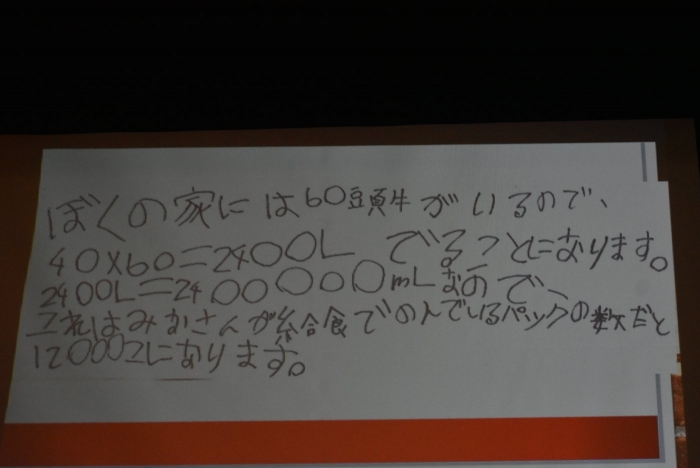 ぼくの家には60頭牛がいるので、
40×60=2400L でることになります。
2400L=2400000mLなので、
これはみかさんが給食でのんでいるパックの数だと
12000コになります。